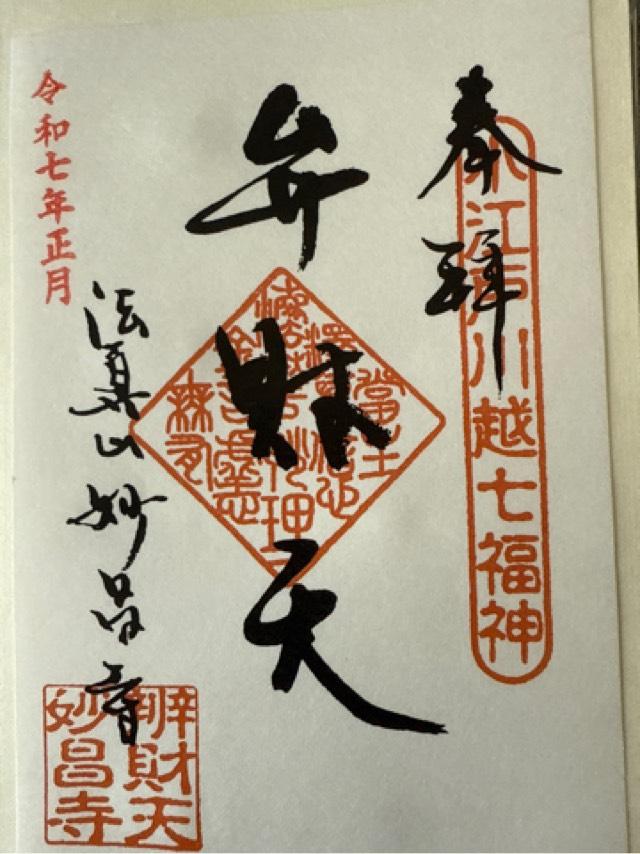 奉拝
小江戸川越七福神
弁財天
令和七年正月
法眞山妙昌寺
辨財天
妙昌寺